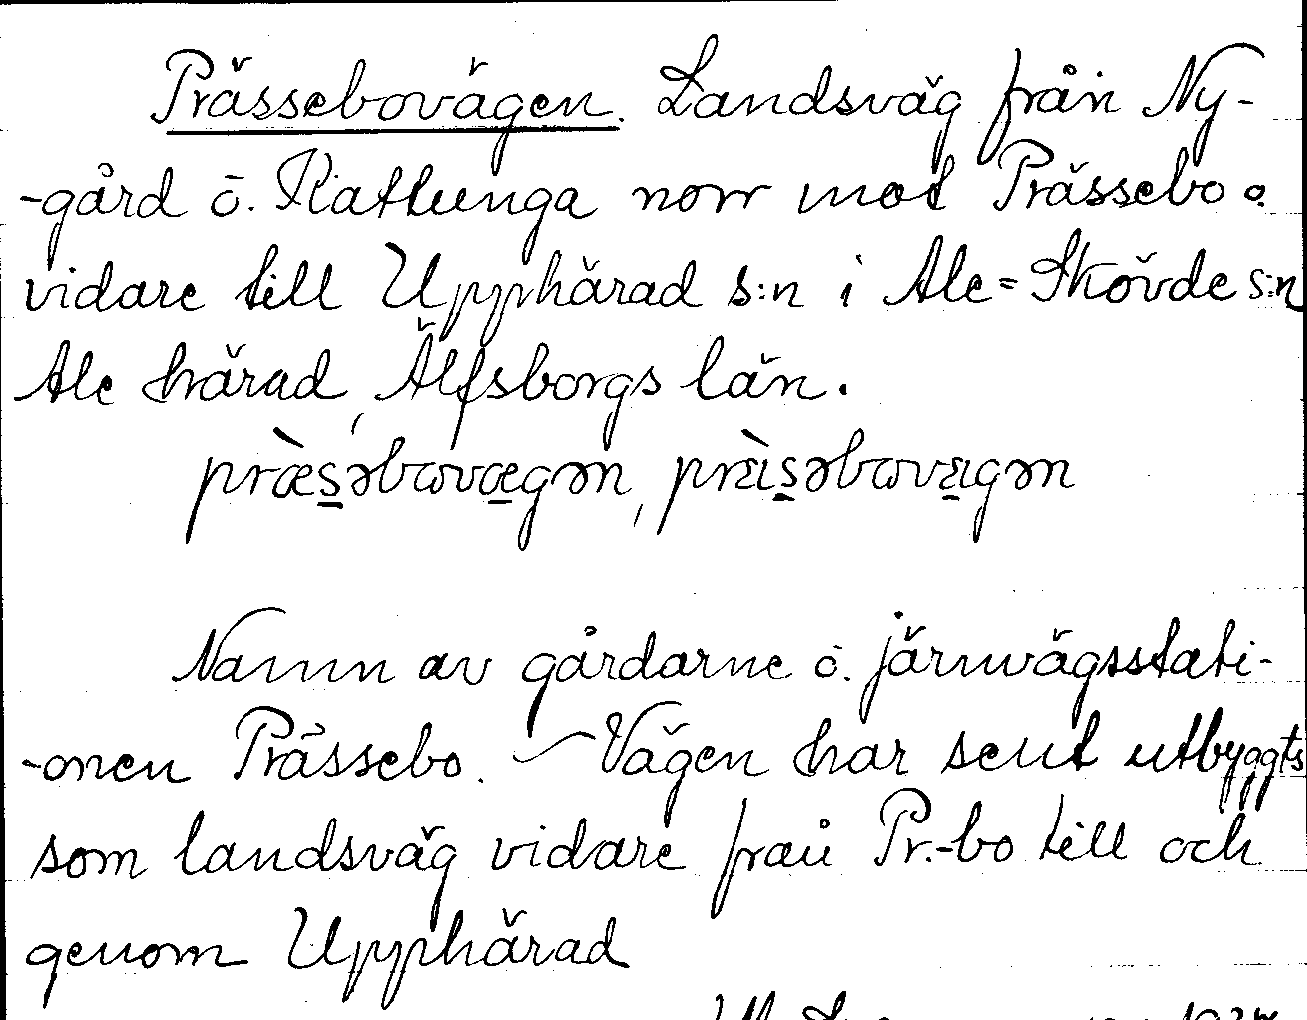 Prässebovägen. Landsväg från Ny-
-gård o. Kattunga norr mot Prässebo o.
vidare till Upphärad s:n i Ale=Skövde s:n
Ale härad, Älfsborgs län.
præsəbovægən, prɛisəbovɛigən
Namn av gårdarne o. järnvägsstati-
-onen Prässebo. – Vägen har sent utbyggts
som landsväg vidare från Pr.-bo till och
genom Upphärad